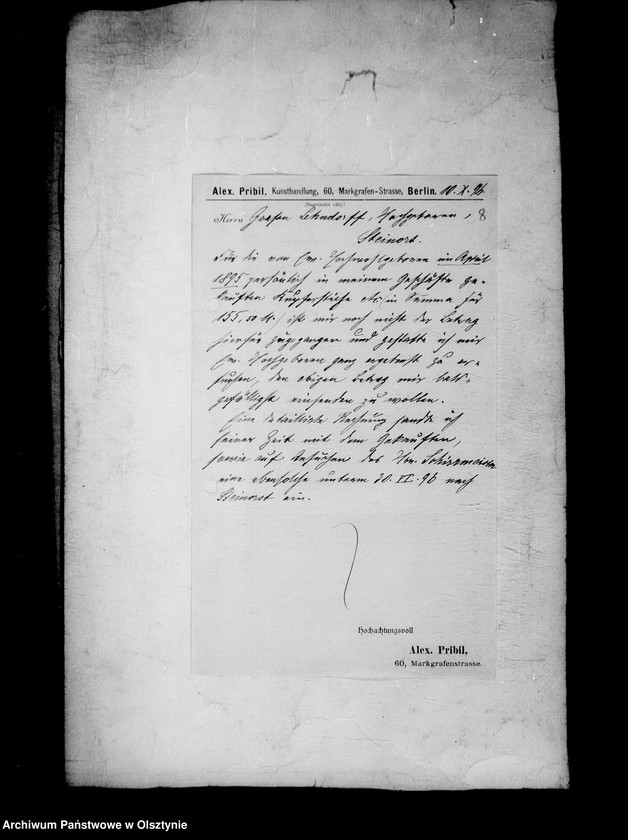 Alex. Pribil, Kunsthandlung, 60, Markgrafen-Strasse, Berlin. 10.X.96
Herrn Grafen Lehndorff, Hochgeboren, 8
Steinort.
Für die von Ew. Hochwohlgeboren im April
1895 persönlich in meinem Geschäfte ge-
kauften Kupferstiche etc (in Summa für
155,50 M.) ist mir noch nicht der Betrag
hierfür zugegangen und gestatte ich mir
Ew. Hochgeboren ganz ergebenst zu er-
suchen, den obigen Betrag mir bald-
gefälligst einsenden zu wollen.
Eine detaillirte Rechnung sandte ich
seiner Zeit mit dem Gekauften,
sowie auf Ersuchen des Hrn. Schirrmeister
eine ebensolche unterm 30.VI.96 nach
Steinort ein.
Hochachtungsvoll
Alex. Pribil,
60, Markgrafenstrasse.
Archiwum Państwowe w Olsztynie